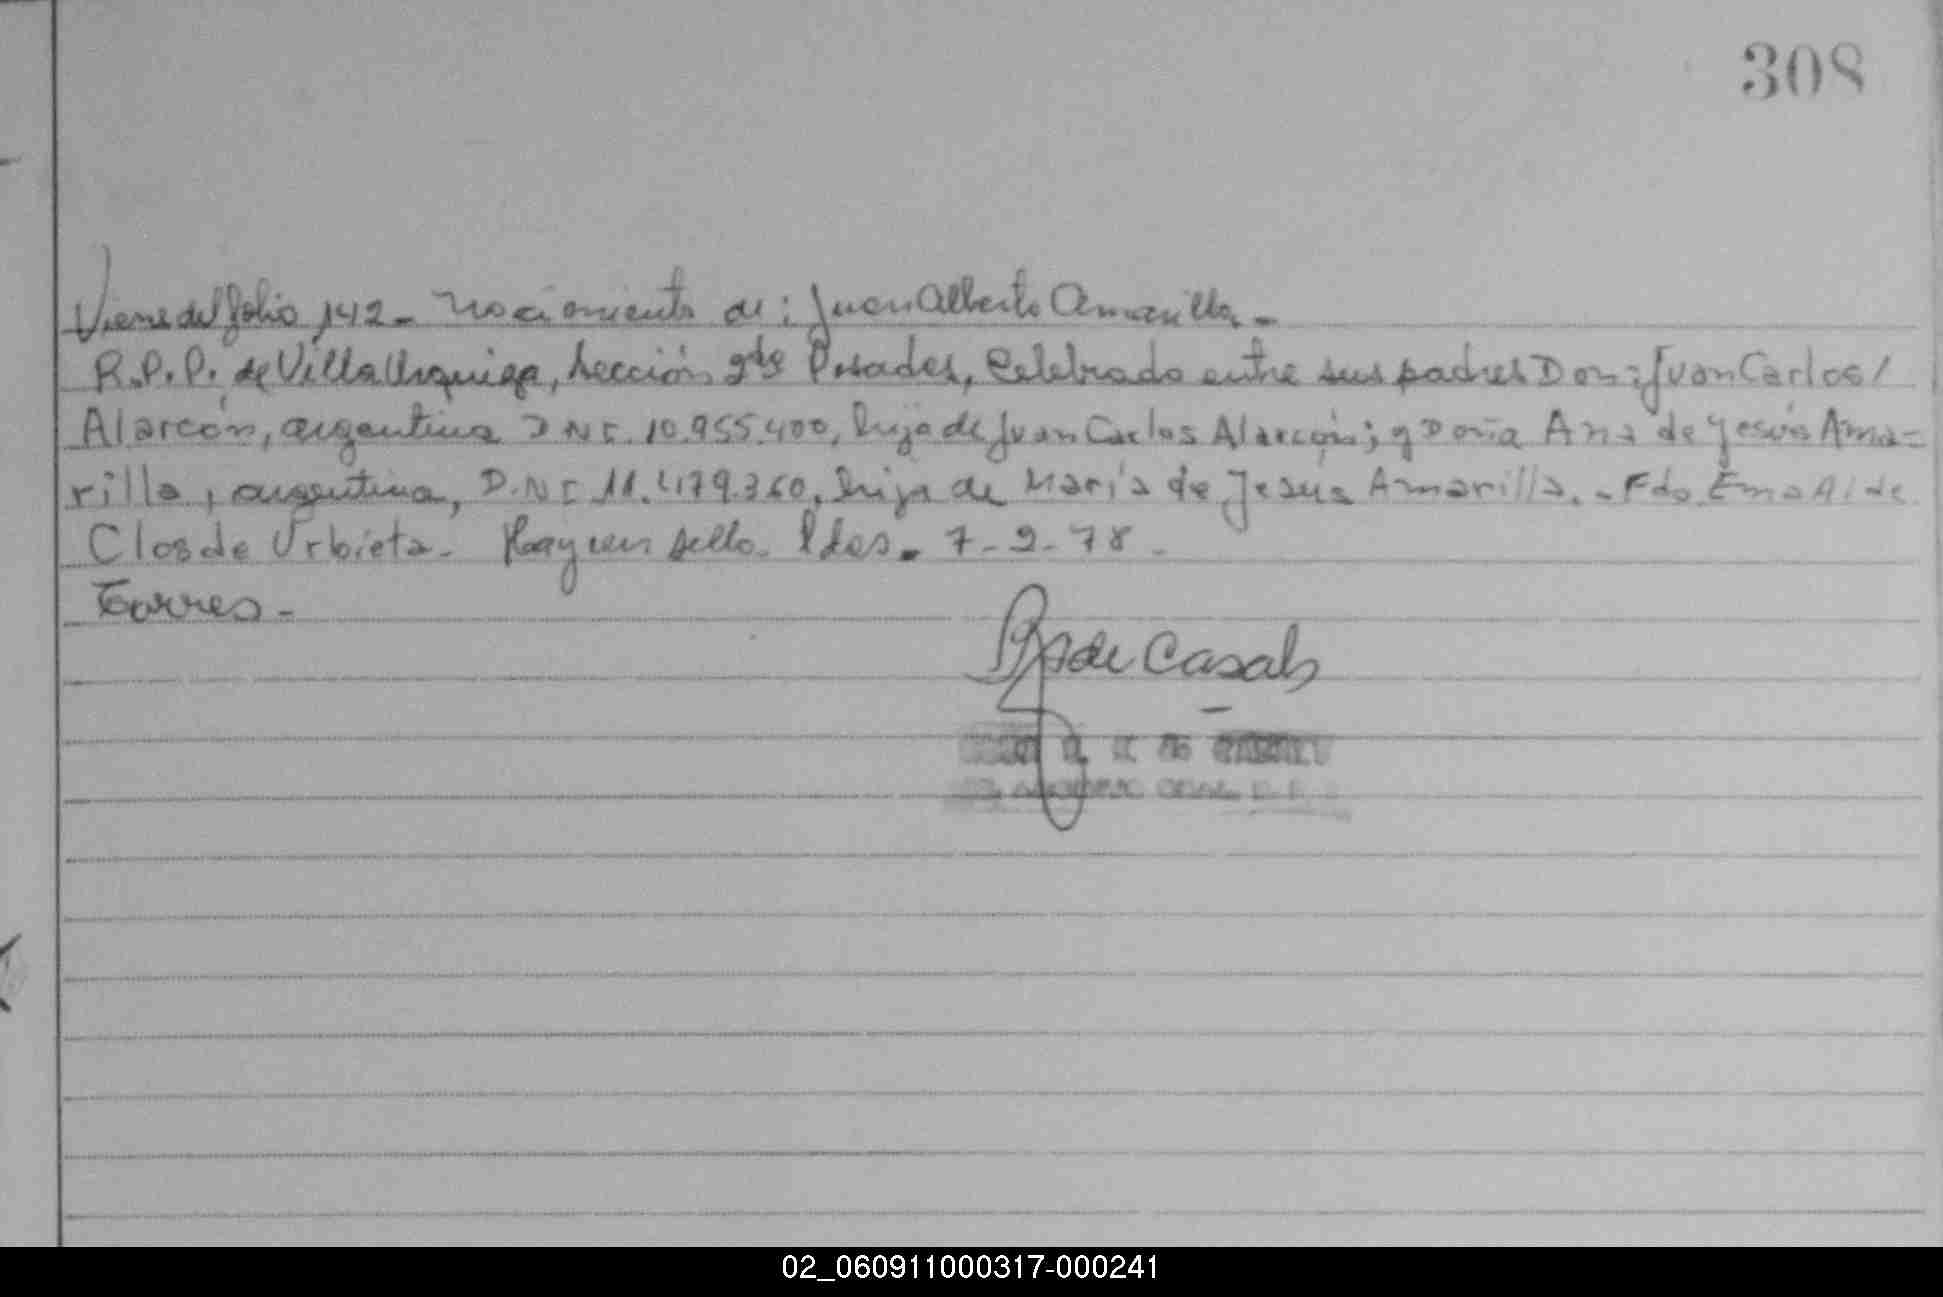 308
Viene del folio 142 - Nacimiento de: Juan Alberto Amarilla.-
R.P.P. de Villa Urquiza, Sección 2da Posadas, Celebrado entre sus padres Don: Juan Carlos/
Alarcón, argentino D.N.I. 10.955.400, hijo de Juan Carlos Alarcón; y Doña Ana de Jesús Ama=
rilla, argentina, D.N.I 11.479.360, hija de María de Jesús Amarilla.- Fdo Ema A/ de
Clos de Urbieta. Hay un sello. Pdas. 7-2-78.
Torres.-
de Casals
02_060911000317-000241